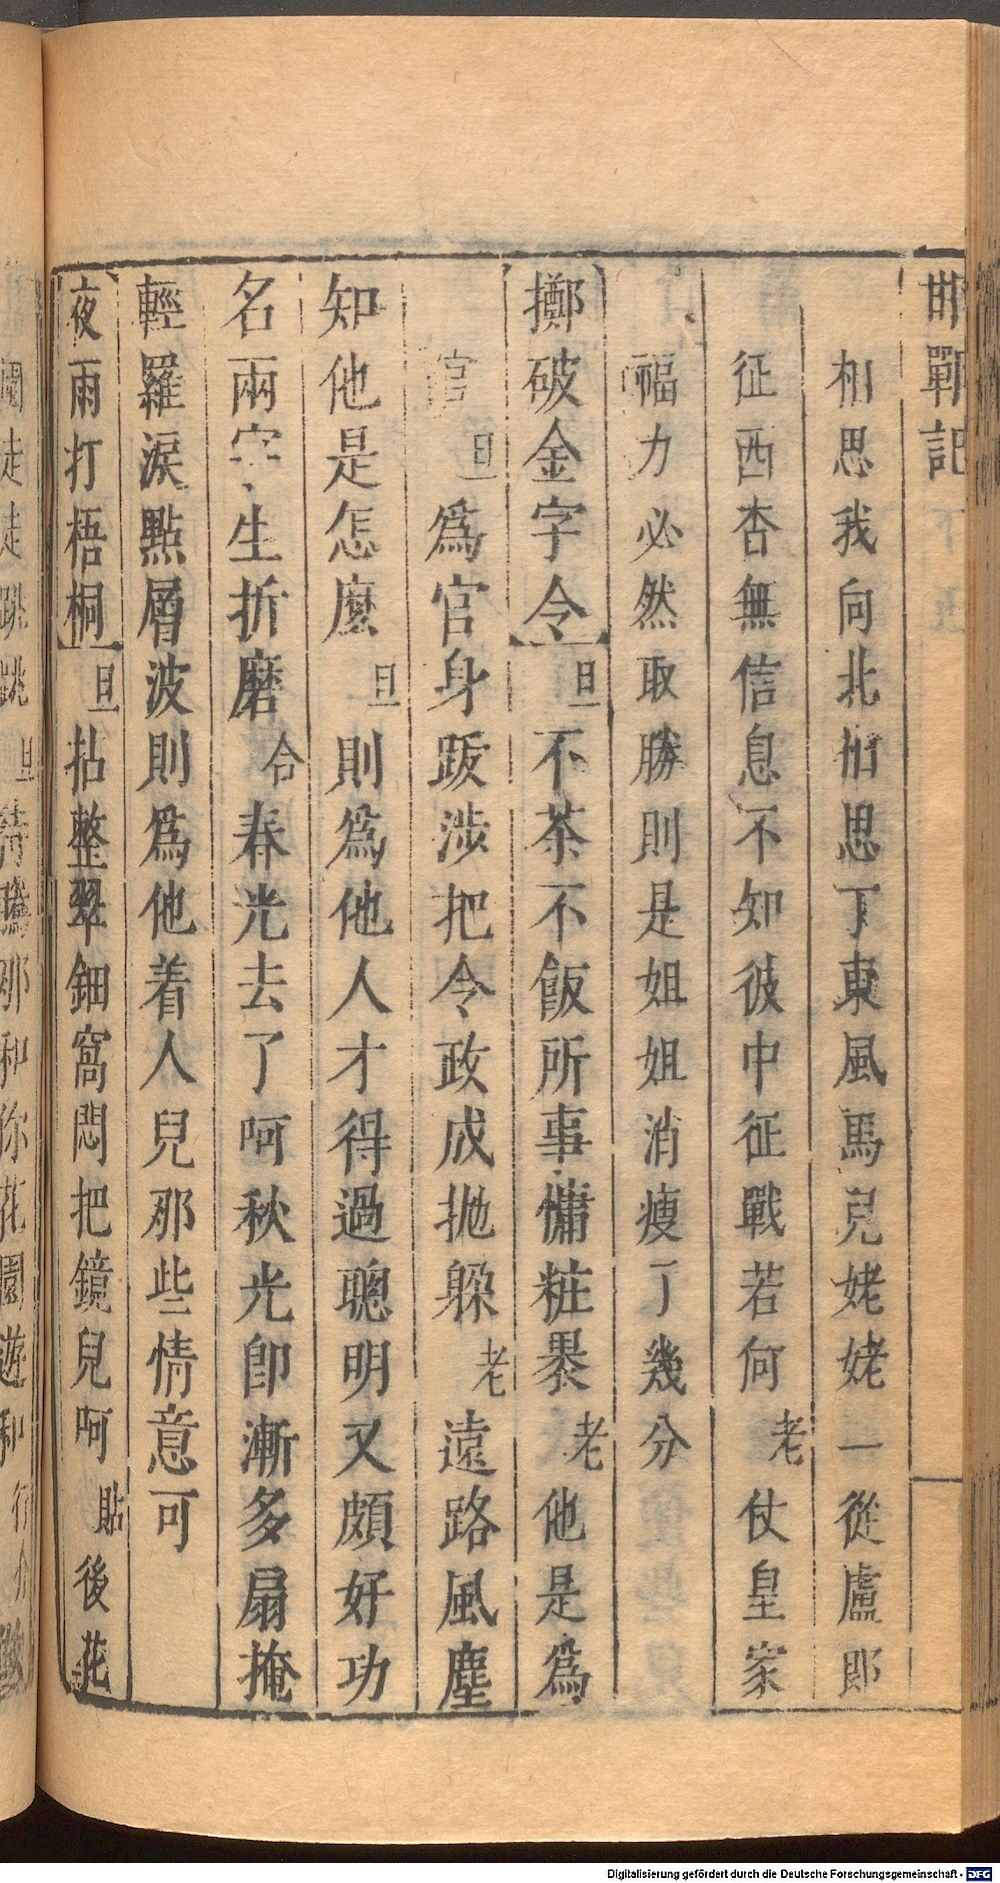 邯鄲記
相思我向北相思丁東風馬兒姥姥一從盧郎
征西杳無信息不知彼中征戰若何老仗皇家
福力必然取勝則是姐姐消瘦了幾分
擲破金字令旦不茶不飯所事慵粧裹老他是為
官旦爲官身跋涉把令政成抛躱老遠路風塵
知他是怎麽旦則爲他人才得過聰明又頗好功
名兩字生折磨合春光去了呵秋光卽漸多扇掩
輕羅淚點層波則爲他着人兒那些情意可
夜雨打梧桐旦拈整翠鈿窩悶把鏡兒呵貼後花
園走走跳跳旦
Digitalisierung gefördert durch die Deutsche Forschungsgemeinschaft - DFG